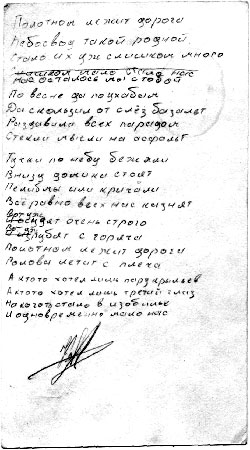 Полотном лежит дорога
Небосвод такой родной
Стало их уж слишком много
нас осталось мы с тобой
По весне да по ухабам
Да скользил от слёз базальт
Раздавило всех парадом
Стекли мысли на асфальт
Тучки по небу бежали
Внизу домики стоят
Пели бы или кричали
Всё равно ведь нас казнят
Вот уже очень строго
рубят с горяча
Полотном лежит дорога
Голова летит с плеча
А кто то хотел лишь пару крыльев
А кто то хотел лишь третий глаз
На кого то стало в изобилье
И одновременно мало нас